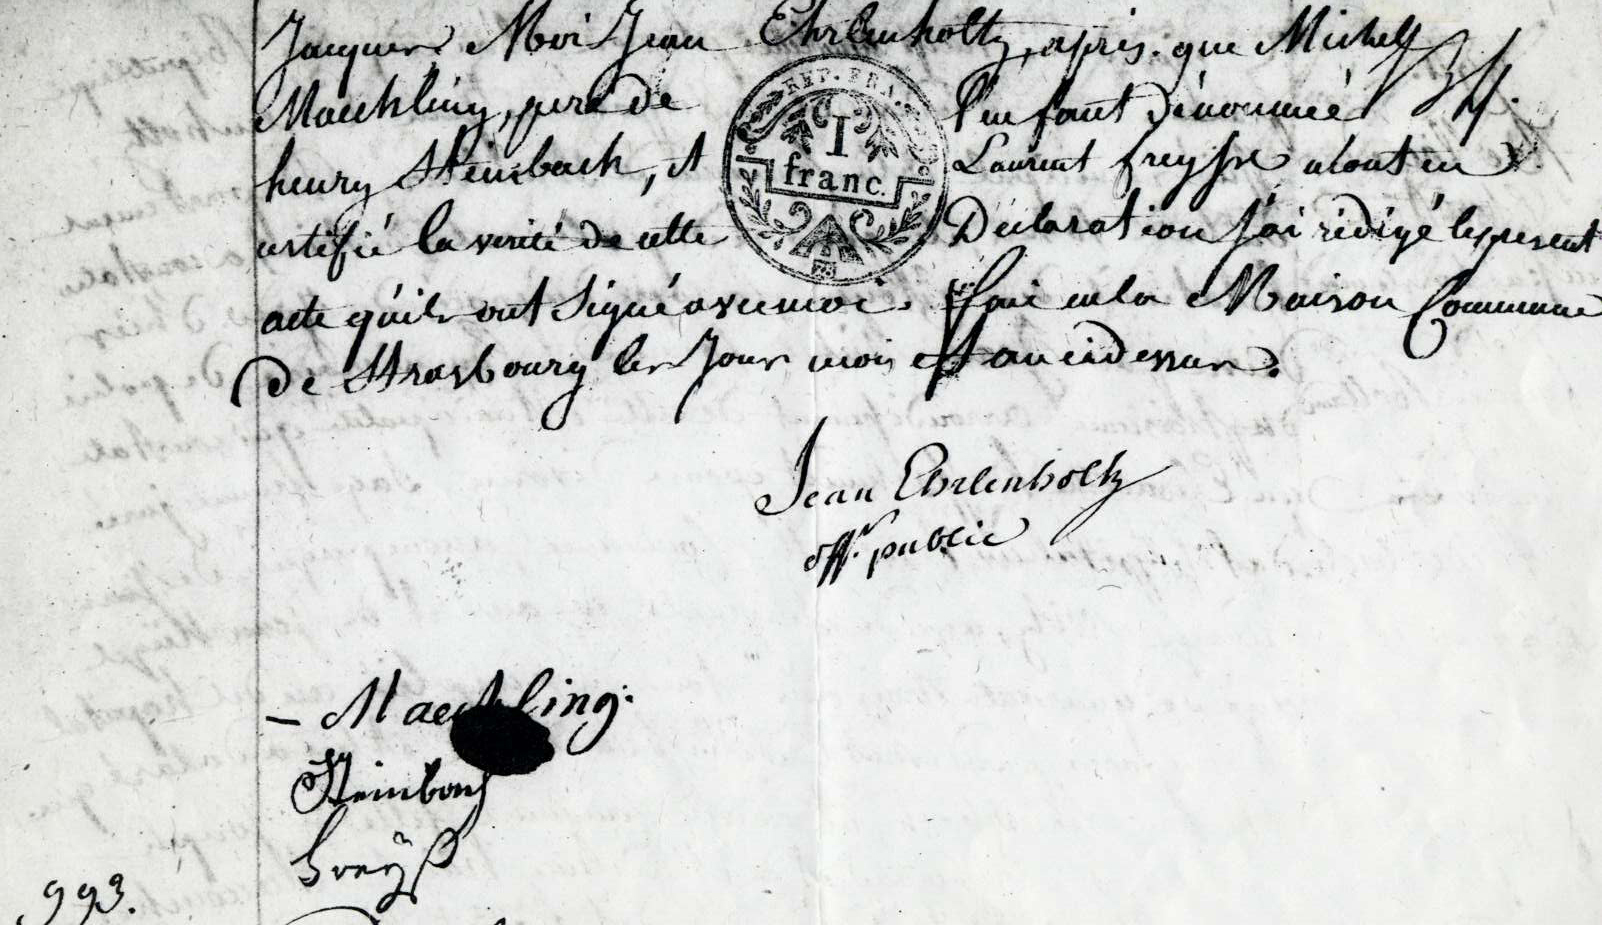 Jacques. Moi Jean Ehrlenholtz, après que Michel
Maechling, pere de l'enfant dénommé
henry Steinbach, et Laurent freyss aiont en
certifié la verité de cette Déclaration j'ai rédigé le present
acte qu'ils ont signé avec moi. fait en la Maison Commune
de Strasbourg les Jour mois et an cidessus.
REP. FRA.
1
franc.
Jean Ehrlenholtz
off. public
Maechling.
Steinbach
freyß
993.